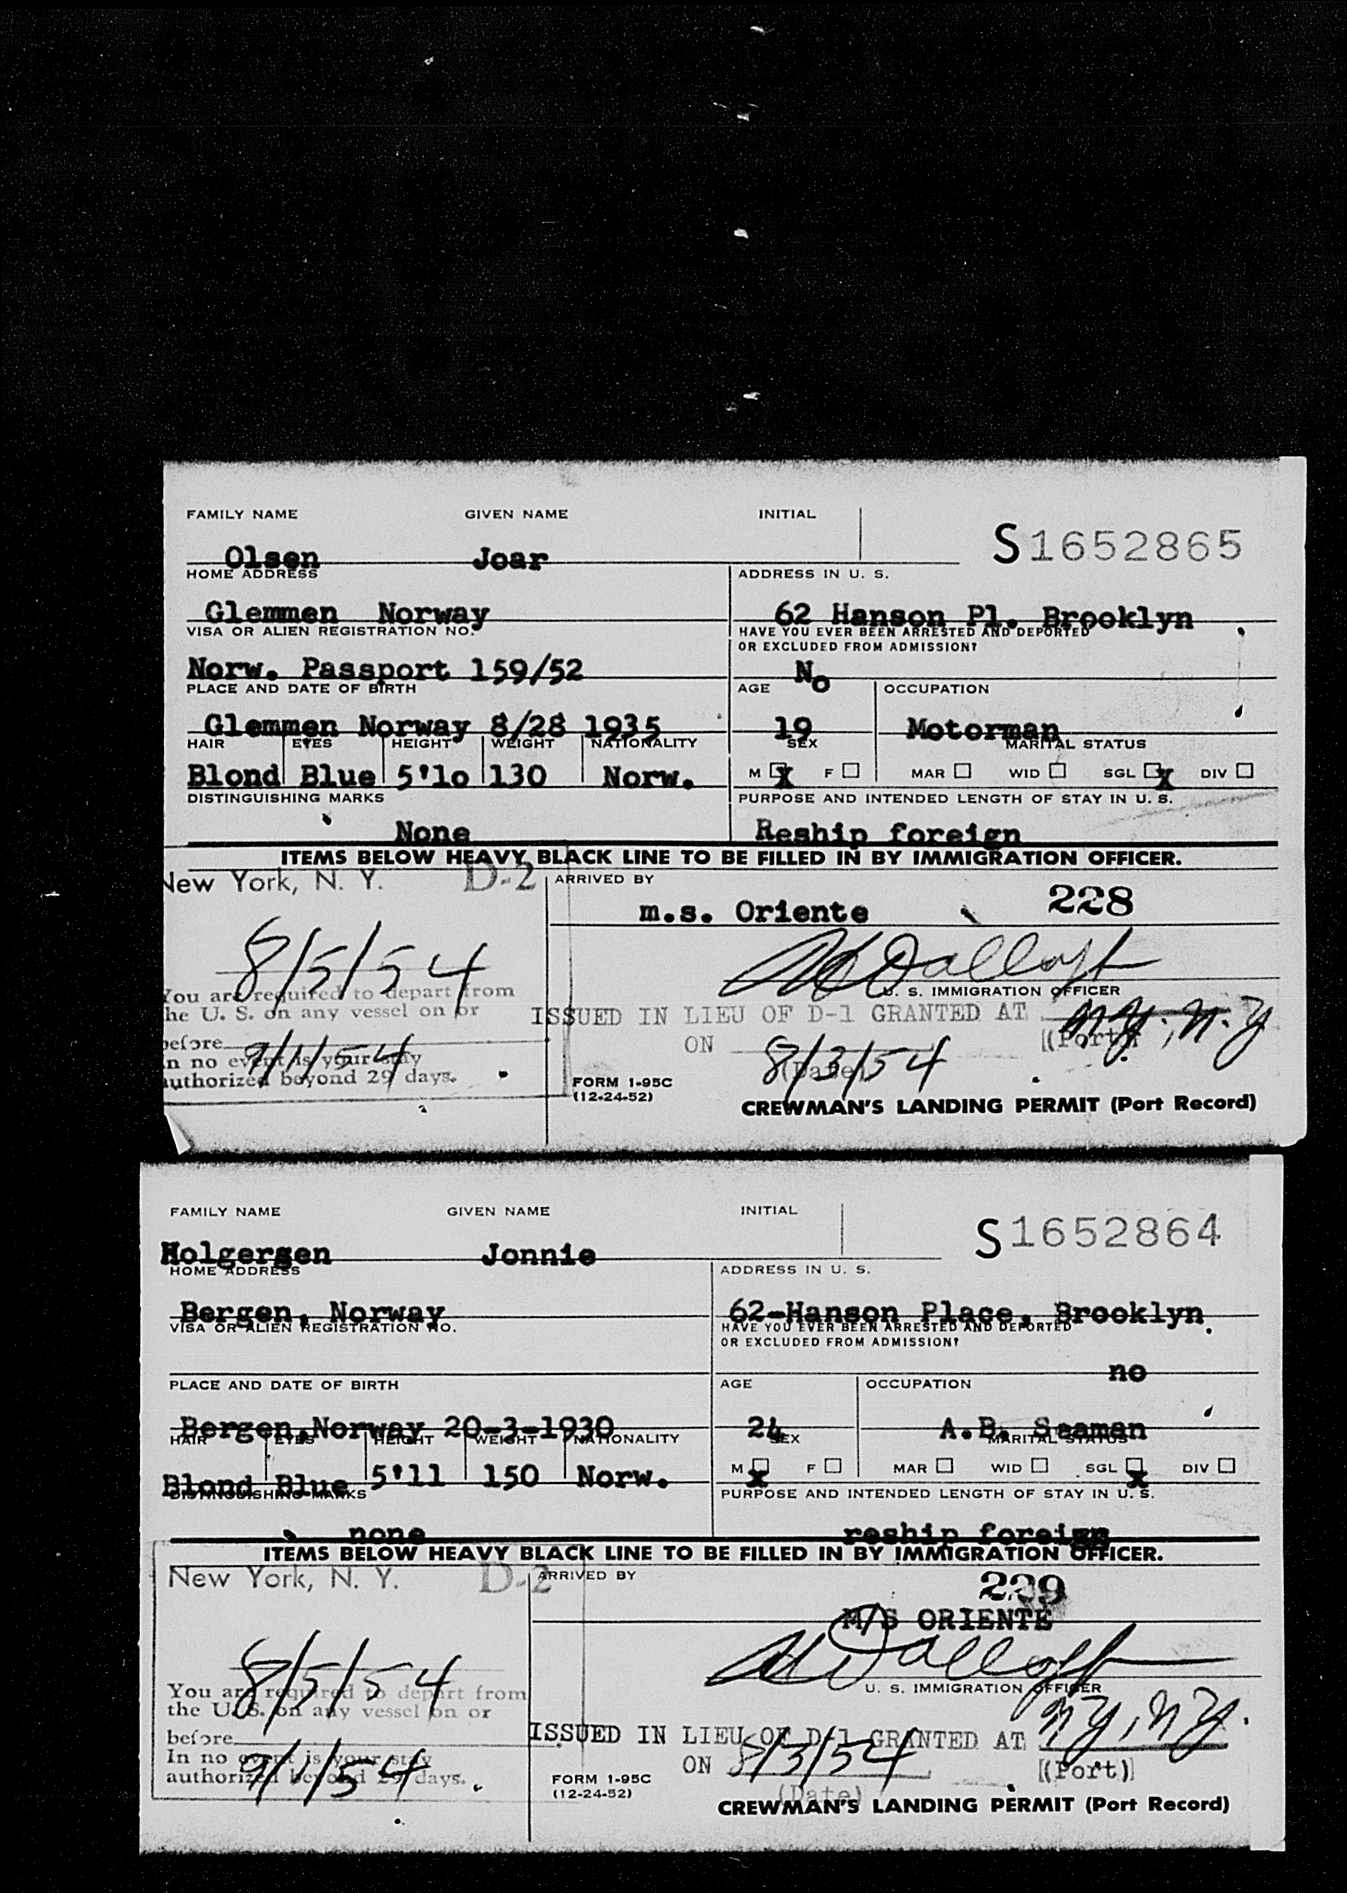 FAMILY NAME GIVEN NAME INITIAL
S1652865
Olsen Joar
HOME ADDRESS ADDRESS IN U. S.
Glemmen Norway 62 Hanson Pl. Brooklyn
VISA OR ALIEN REGISTRATION NO. HAVE YOU EVER BEEN ARRESTED AND DEPORTED
OR EXCLUDED FROM ADMISSION?
Norw. Passport 159/52 No
PLACE AND DATE OF BIRTH AGE OCCUPATION
Glemmen Norway 8/28 1935 19 Motorman
HAIR EYES HEIGHT WEIGHT NATIONALITY SEX MARITAL STATUS
Blond Blue 5'1o 130 Norw. M X F MAR WID SGL X DIV
DISTINGUISHING MARKS PURPOSE AND INTENDED LENGTH OF STAY IN U. S.
None Reship foreign
ITEMS BELOW HEAVY BLACK LINE TO BE FILLED IN BY IMMIGRATION OFFICER.
New York, N. Y. D-2 ARRIVED BY
m.s. Oriente 228
8/5/54
U. S. IMMIGRATION OFFICER
You are required to depart from
the U. S. on any vessel on or
ISSUED IN LIEU OF D-1 GRANTED AT N.Y., N.Y
before 9/1/54 ON 8/3/54 (Port)
In no event is your stay
authorized beyond 29 days. (Date)
FORM 1-95C
(12-24-52)
CREWMAN'S LANDING PERMIT (Port Record)
FAMILY NAME GIVEN NAME INITIAL
S1652864
Holgersen Jonnie
HOME ADDRESS ADDRESS IN U. S.
Bergen, Norway 62-Hanson Place, Brooklyn
VISA OR ALIEN REGISTRATION NO. HAVE YOU EVER BEEN ARRESTED AND DEPORTED
OR EXCLUDED FROM ADMISSION?
no
PLACE AND DATE OF BIRTH AGE OCCUPATION
Bergen,Norway 20-3-1930 24 A.B. Seaman
HAIR EYES HEIGHT WEIGHT NATIONALITY SEX MARITAL STATUS
Blond Blue 5'11 150 Norw. M X F MAR WID SGL X DIV
DISTINGUISHING MARKS PURPOSE AND INTENDED LENGTH OF STAY IN U. S.
none reship foreign
ITEMS BELOW HEAVY BLACK LINE TO BE FILLED IN BY IMMIGRATION OFFICER.
New York, N. Y. D-2 ARRIVED BY
229
M/S ORIENTE
8/5/54
U. S. IMMIGRATION OFFICER
You are required to depart from
the U. S. on any vessel on or
before 9/1/54 ISSUED IN LIEU OF D-1 GRANTED AT NY, NY.
In no event is your stay ON 8/3/54 (Port)
authorized beyond 29 days.
(Date)
FORM 1-95C
(12-24-52)
CREWMAN'S LANDING PERMIT (Port Record)